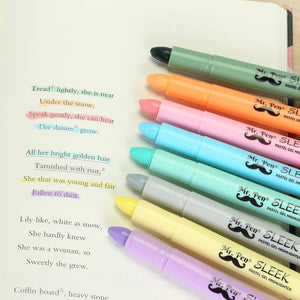 Tread° lightly, she is near
Under the snow,
Speak gently, she can hear
The daisies° grow.
All her bright golden hair
Tarnished with rust,°
She that was young and fair
Fallen to dust.
Lily-like, white as snow,
She hardly knew
She was a woman, so
Sweetly she grew.
Coffin-board,° heavy stone
Mr. Pen
Mr. Pen SLEEK
PASTEL GEL HIGHLIGHTER
Mr. Pen SLEEK
PASTEL GEL HIGHLIGHTER
Mr. Pen SLEEK
PASTEL GEL HIGHLIGHTER
Mr. Pen SLEEK
PASTEL GEL HIGHLIGHTER
Mr. Pen SLEEK
PASTEL GEL HIGHLIGHTER
Mr. Pen SLEEK
Mr. Pen